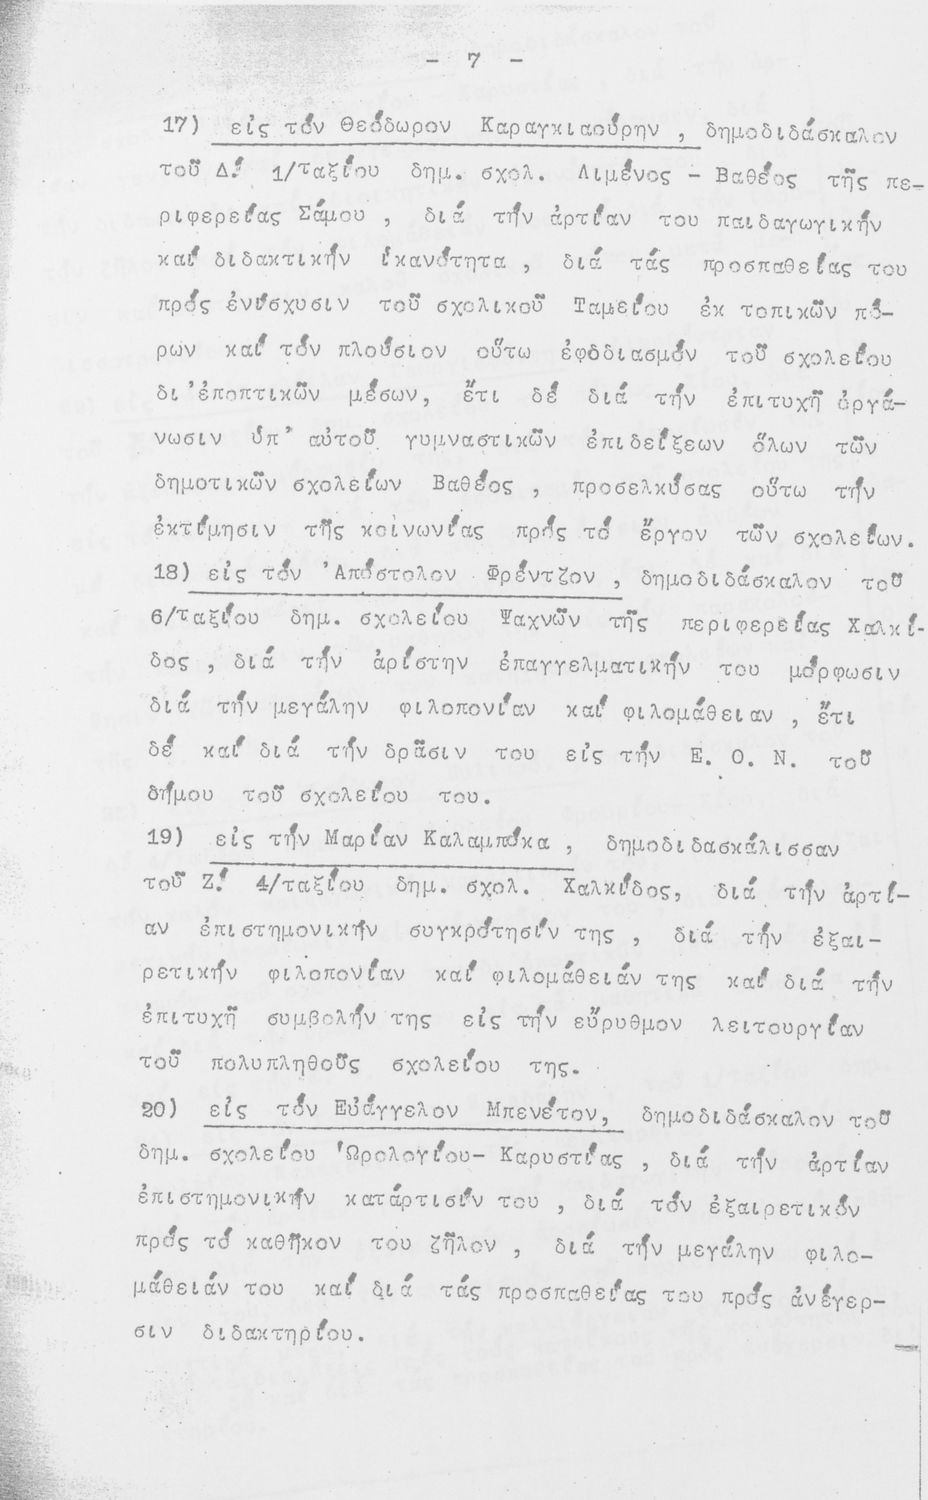 - 7 -
17) εἰς τόν Θεόδωρον Καραγκιαούρην , δημοδιδάσκαλον
τοῦ Δ! 1/ταξίου δημ. σχολ. Λιμένος - Βαθέος τῆς πε-
ριφερείας Σάμου , διά τήν ἀρτίαν του παιδαγωγικήν
καί διδακτικήν ἱκανότητα , διά τάς προσπαθείας του
πρός ἐνίσχυσιν τοῦ σχολικοῦ Ταμείου ἐκ τοπικῶν πό-
ρων καί τόν πλούσιον οὕτω ἐφοδιασμόν τοῦ σχολείου
δι'ἐποπτικῶν μέσων, ἔτι δέ διά τήν ἐπιτυχῆ ὀργά-
νωσιν ὑπ' αὐτοῦ γυμναστικῶν ἐπιδείξεων ὅλων τῶν
δημοτικῶν σχολείων Βαθέος , προσελκύσας οὕτω τήν
ἐκτίμησιν τῆς κοινωνίας πρός τό ἔργον τῶν σχολείων.
18) εἰς τόν 'Απόστολον Φρέντζον , δημοδιδάσκαλον τοῦ
6/ταξίου δημ. σχολείου Ψαχνῶν τῆς περιφερείας Χαλκί-
δος , διά τήν ἀρίστην ἐπαγγελματικήν του μόρφωσιν
διά τήν μεγάλην φιλοπονίαν καί φιλομάθειαν , ἔτι
δέ καί διά τήν δρᾶσιν του εἰς τήν Ε. Ο. Ν. τοῦ
δήμου τοῦ σχολείου του.
19) εἰς τήν Μαρίαν Καλαμπόκα , δημοδιδασκάλισσαν
τοῦ Ζ! 4/ταξίου δημ. σχολ. Χαλκίδος, διά τήν ἀρτί-
αν ἐπιστημονικήν συγκρότησίν της , διά τήν ἐξαι-
ρετικήν φιλοπονίαν καί φιλομάθειάν της καί διά τήν
ἐπιτυχῆ συμβολήν της εἰς τήν εὔρυθμον λειτουργίαν
τοῦ πολυπληθοῦς σχολείου της.
20) εἰς τόν Εὐάγγελον Μπενέτον, δημοδιδάσκαλον τοῦ
δημ. σχολείου 'Ωρολογίου- Καρυστίας , διά τήν ἀρτίαν
ἐπιστημονικήν κατάρτισίν του , διά τόν ἐξαιρετικόν
πρός τό καθῆκον του ζῆλον , διά τήν μεγάλην φιλο-
μάθειάν του καί διά τάς προσπαθείας του πρός ἀνέγερ-
σιν διδακτηρίου.